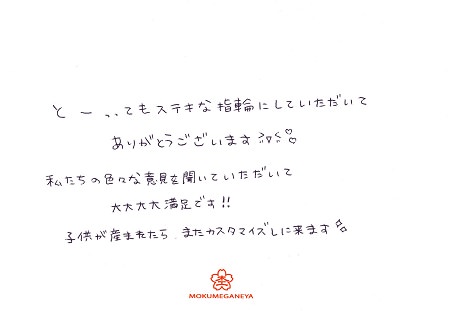 とー、、てもステキな指輪にしていただいて
ありがとうございます
私たちの色々な意見を聞いていただいて
大大大大満足です!!
子供が産まれたら、またカスタマイズしに来ます
MOKUMEGANEYA